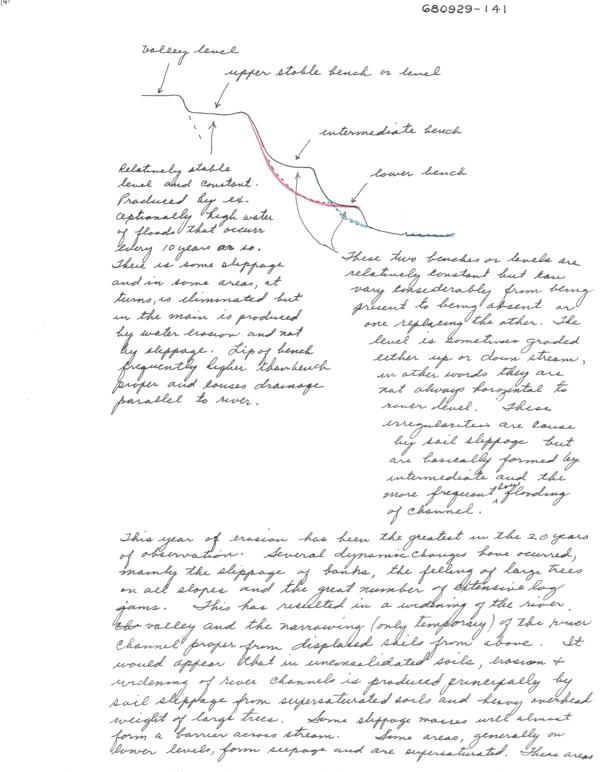 680929-141
valley level
upper stable bench or level
intermediate bench
lower bench
Relatively stable
level and constant.
Produced by ex-
ceptionally high water
of floods that occurr
every 10 years or so.
There is some slippage
and in some areas, at
turns, is eliminated but
in the main is produced
by water erosion and not
by slippage. Lip of bench
frequently higher than bench
proper and causes drainage
parallel to river.
These two benches or levels are
relatively constant but can
vary considerably from being
present to being absent or
one replacing the other. The
level is sometimes graded
either up or down stream,
in other words they are
not always horizontal to
river level. These
irregularities are cause
by soil slippage but
are basically formed by
intermediate and the
more frequent low flooding
of channel.
This year of erosion has been the greatest in the 20 years
of observation. Several dynamic changes have ocurred,
mainly the slippage of banks, the felling of large trees
on all slopes and the great number of extensive log
jams. This has resulted in a widening of the river
valley and the narrowing (only temporary) of the river
channel proper from displaced soils from above. It
would appear that in unconsolidated soils, erosion +
widening of river channels is produced principally by
soil slippage from supersaturated soils and heavy overhead
weight of large trees. Some slippage masses will almost
form a barrier across stream. Some areas, generally on
lower levels, form seepage and are supersaturated. These areas